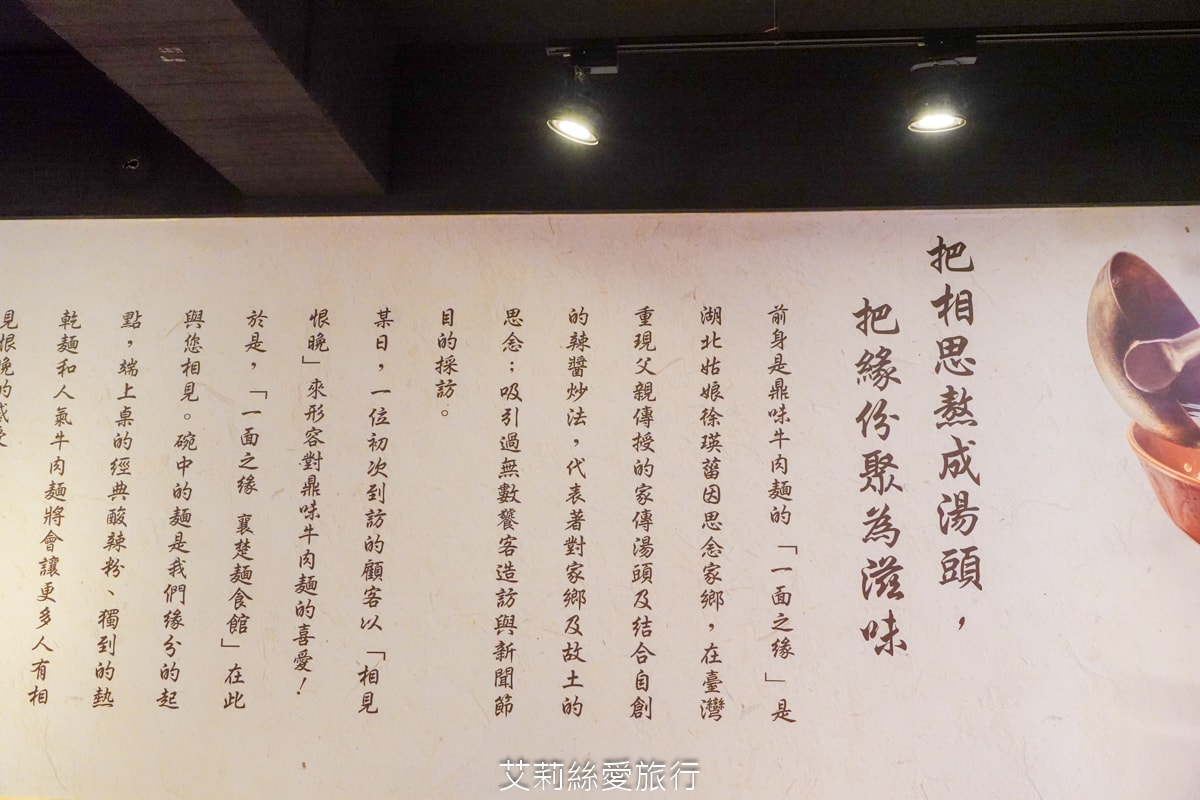 把相思熬成湯頭，
把緣份聚為滋味
前身是鼎味牛肉麵的「一面之緣」是
湖北姑娘徐瑛菑因思念家鄉，在臺灣
重現父親傳授的家傳湯頭及結合自創
的辣醬炒法，代表著對家鄉及故土的
思念；吸引過無數饕客造訪與新聞節
目的採訪。
某日，一位初次到訪的顧客以「相見
恨晚」來形容對鼎味牛肉麵的喜愛！
於是，「一面之緣 襄楚麵食館」在此
與您相見。碗中的麵是我們緣分的起
點，端上桌的經典酸辣粉、獨到的熱
乾麵和人氣牛肉麵將會讓更多人有相
見恨晚的感受
艾莉絲愛旅行